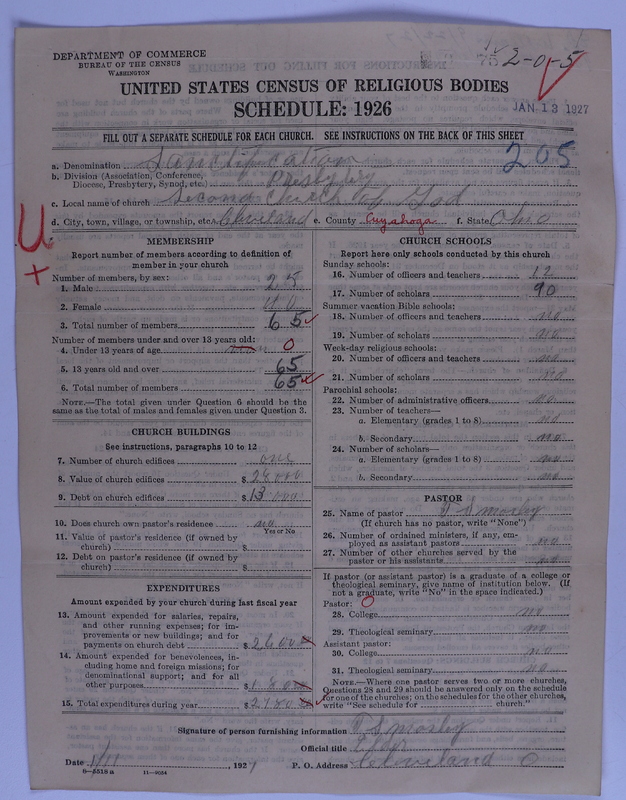 DEPARTMENT OF COMMERCE
BUREAU OF THE CENSUS
WASHINGTON
75 2-0-5
UNITED STATES CENSUS OF RELIGIOUS BODIES
SCHEDULE: 1926
JAN 13 1927
FILL OUT A SEPARATE SCHEDULE FOR EACH CHURCH. SEE INSTRUCTIONS ON THE BACK OF THIS SHEET
205
a. Denomination Sanctification
b. Division (Association, Conference, Diocese, Presbytery, Synod, etc.) Presbytry
c. Local name of church Second Church of God
d. City, town, village, or township, etc. Cleveland e. County Cuyahoga f. State Ohio
U
+
MEMBERSHIP
Report number of members according to definition of member in your church
Number of members, by sex:
1. Male 25
2. Female 40
3. Total number of members 65
Number of members under and over 13 years old:
4. Under 13 years of age 0
5. 13 years old and over 65
6. Total number of members 65
NOTE.—The total given under Question 6 should be the same as the total of males and females given under Question 3.
CHURCH BUILDINGS
See instructions, paragraphs 10 to 12
7. Number of church edifices one
8. Value of church edifices $ 28000
9. Debt on church edifices $ 13 000
10. Does church own pastor's residence no
Yes or No
11. Value of pastor's residence (if owned by church) $
12. Debt on pastor's residence (if owned by church) $
EXPENDITURES
Amount expended by your church during last fiscal year
13. Amount expended for salaries, repairs, and other running expenses; for improvements or new buildings; and for payments on church debt $ 2600
14. Amount expended for benevolences, including home and foreign missions; for denominational support; and for all other purposes $
15. Total expenditures during year $
CHURCH SCHOOLS
Report here only schools conducted by this church
Sunday schools:
16. Number of officers and teachers 12
17. Number of scholars 90
Summer vacation Bible schools:
18. Number of officers and teachers no
19. Number of scholars no
Week-day religious schools:
20. Number of officers and teachers no
21. Number of scholars no
Parochial schools:
22. Number of administrative officers no
23. Number of teachers—
a. Elementary (grades 1 to 8) no
b. Secondary no
24. Number of scholars—
a. Elementary (grades 1 to 8) no
b. Secondary no
PASTOR
25. Name of pastor T S Mosby
(If church has no pastor, write "None")
26. Number of ordained ministers, if any, employed as assistant pastors no
27. Number of other churches served by the pastor or his assistants no
If pastor (or assistant pastor) is a graduate of a college or theological seminary, give name of institution below. (If not a graduate, write "No" in the space indicated.)
Pastor: 0
28. College no
29. Theological seminary no
Assistant pastor:
30. College no
31. Theological seminary no
NOTE.—Where one pastor serves two or more churches, Questions 28 and 29 should be answered only on the schedule for one of the churches; on the schedules for the other churches, write "See schedule for church."
Signature of person furnishing information T S Mosby
Official title
Date 1/11, 1927 P. O. Address Cleveland O
8—5518 a 11—9034